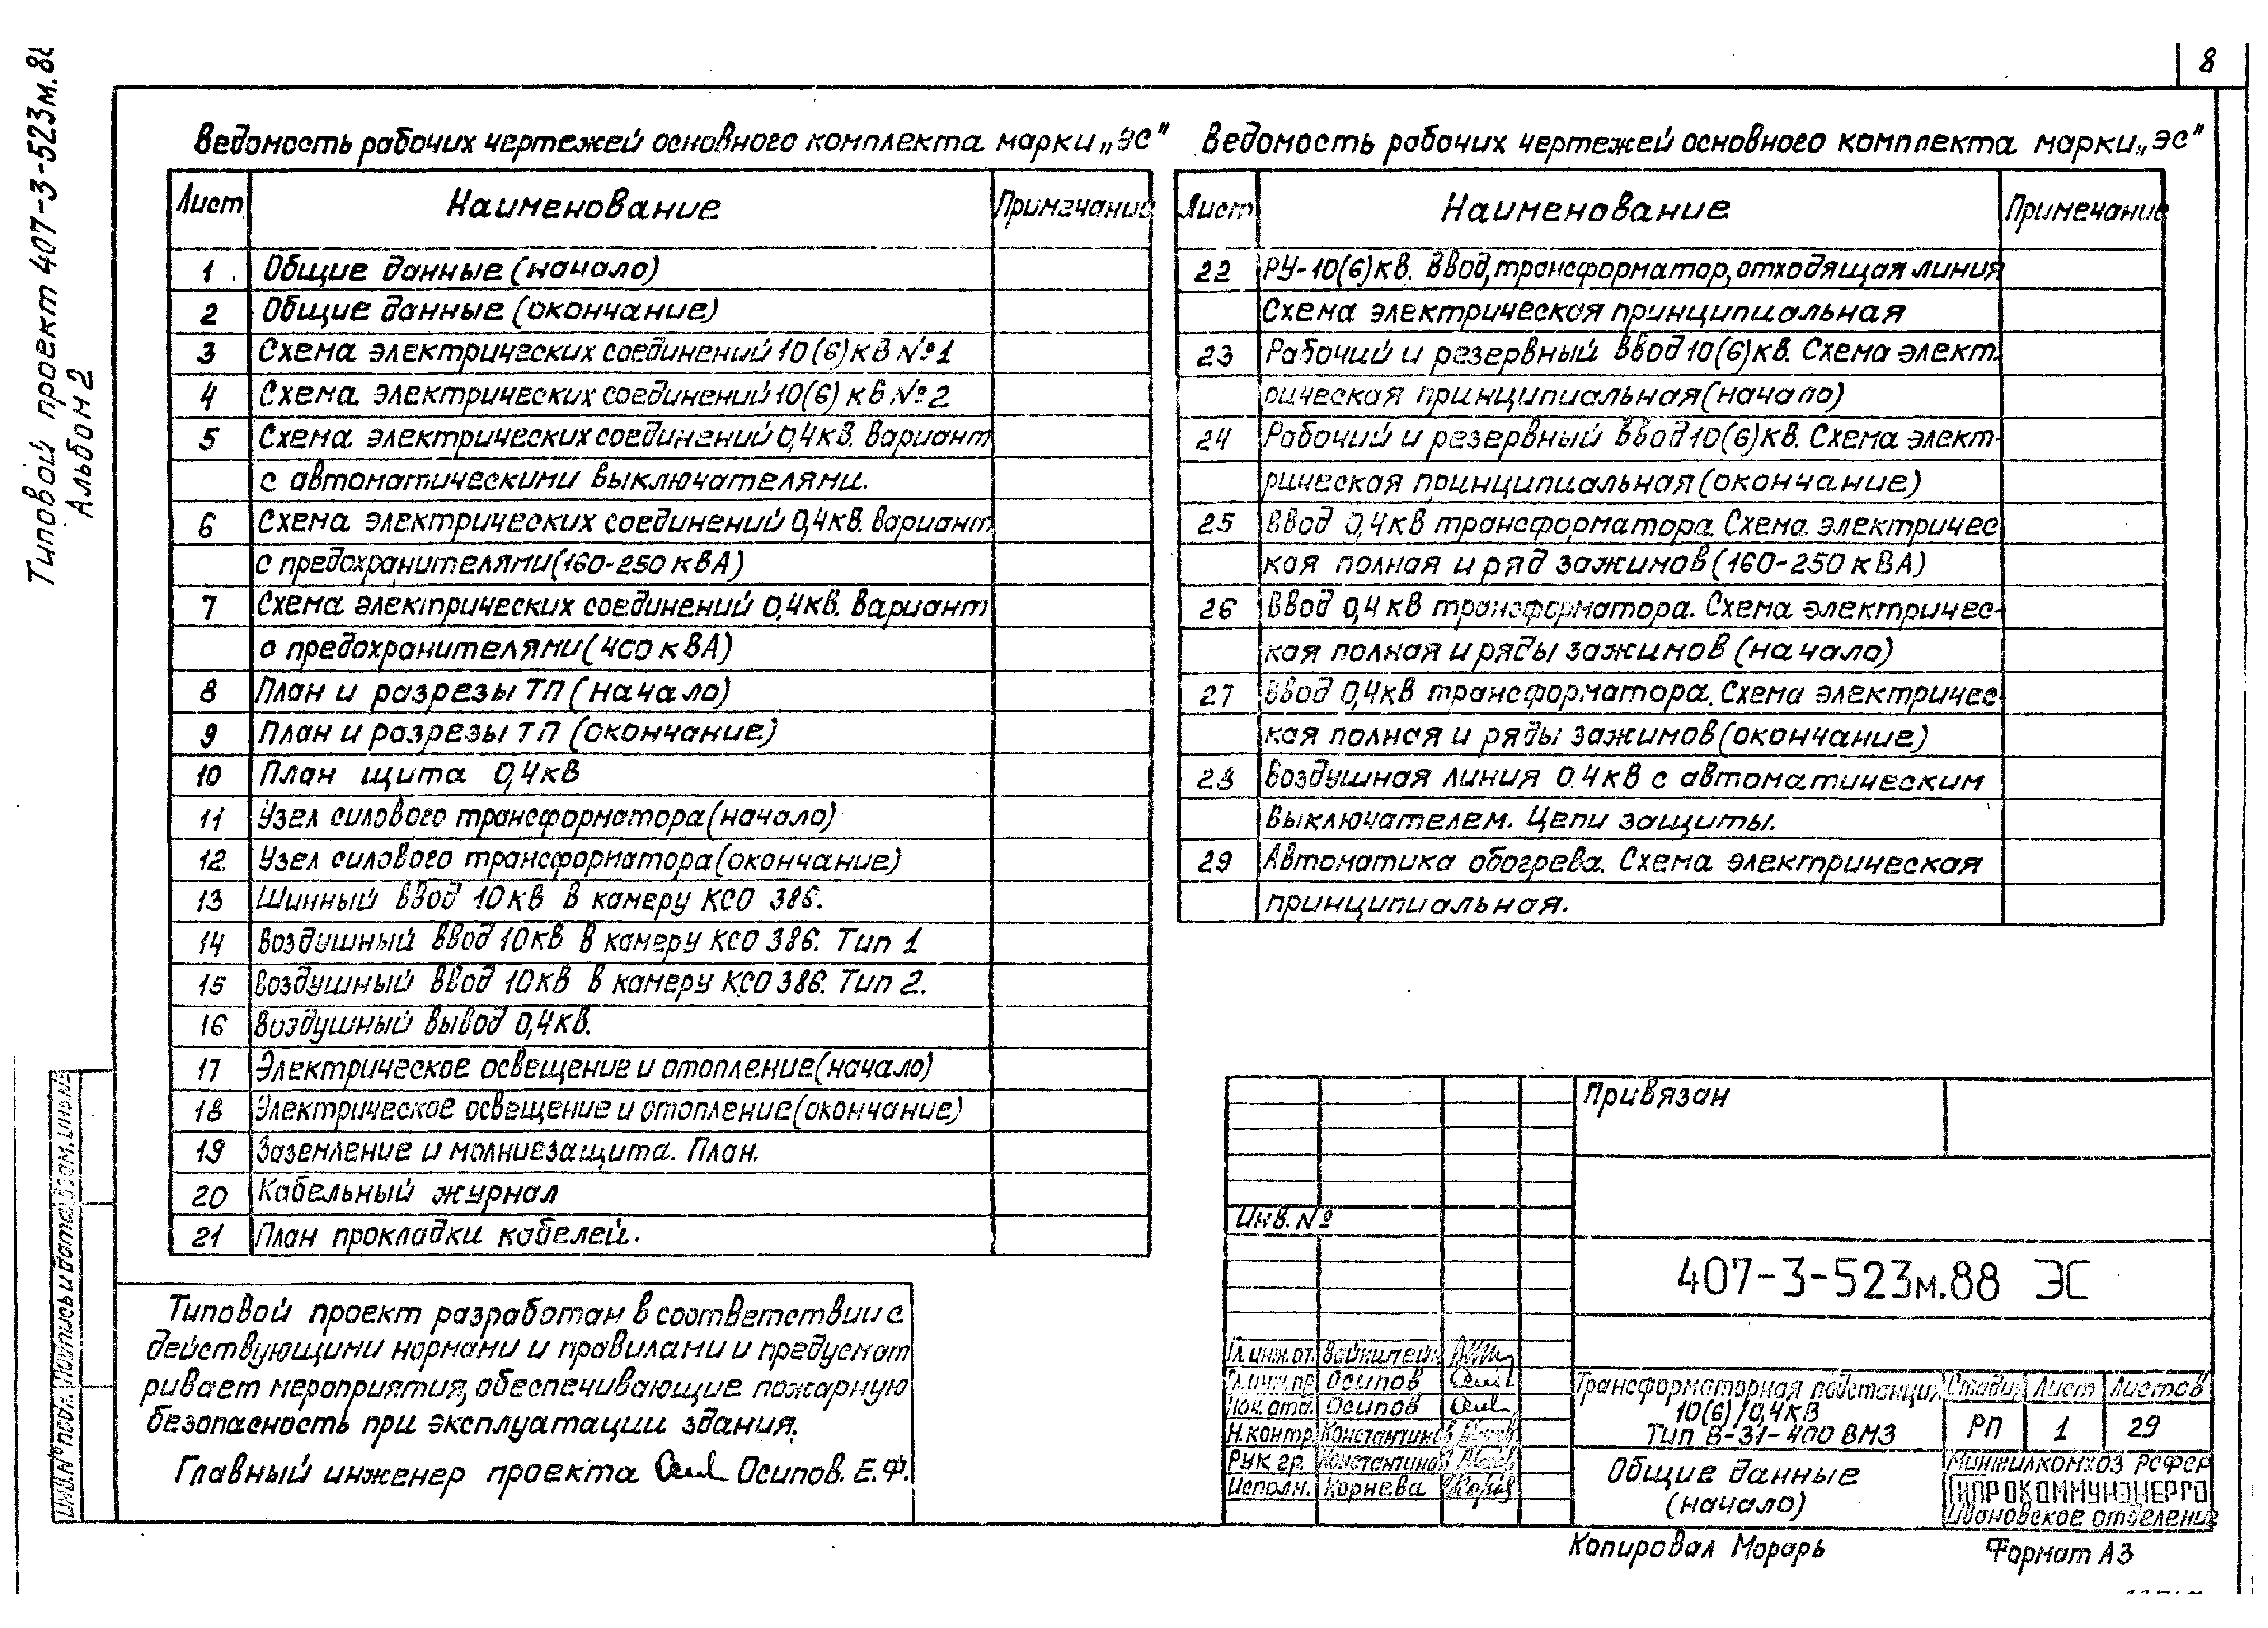 8
Типовой проект 407-3-523м.88
Альбом 2
Ведомость рабочих чертежей основного комплекта марки „ЭС"
Лист Наименование Примечание
1 Общие данные (начало)
2 Общие данные (окончание)
3 Схема электрических соединений 10(6)кВ №1
4 Схема электрических соединений 10(6) кВ №2
5 Схема электрических соединений 0,4кВ. Вариант
с автоматическими выключателями.
6 Схема электрических соединений 0,4кВ. Вариант
с предохранителями (160-250 кВА)
7 Схема электрических соединений 0,4кВ. Вариант
с предохранителями (400 кВА)
8 План и разрезы ТП (начало)
9 План и разрезы ТП (окончание)
10 План щита 0,4кВ
11 Узел силового трансформатора (начало)
12 Узел силового трансформатора (окончание)
13 Шинный ввод 10кВ в камеру КСО 386.
14 Воздушный ввод 10кВ в камеру КСО 386. Тип 1
15 Воздушный ввод 10кВ в камеру КСО 386. Тип 2.
16 Воздушный вывод 0,4кВ.
17 Электрическое освещение и отопление (начало)
18 Электрическое освещение и отопление (окончание)
19 Заземление и молниезащита. План.
20 Кабельный журнал
21 План прокладки кабелей.
Ведомость рабочих чертежей основного комплекта марки „ЭС"
Лист Наименование Примечание
22 РУ-10(6)кВ. Ввод, трансформатор, отходящая линия
Схема электрическая принципиальная
23 Рабочий и резервный ввод 10(6)кВ. Схема элект-
рическая принципиальная (начало)
24 Рабочий и резервный ввод 10(6)кВ. Схема элект-
рическая принципиальная (окончание)
25 Ввод 0,4кВ трансформатора. Схема электричес
кая полная и ряд зажимов (160-250 кВА)
26 Ввод 0,4 кВ трансформатора. Схема электричес-
кая полная и ряды зажимов (начало)
27 Ввод 0,4кВ трансформатора. Схема электричес-
кая полная и ряды зажимов (окончание)
28 Воздушная линия 0.4кВ с автоматическим
выключателем. Цепи защиты.
29 Автоматика обогрева. Схема электрическая
принципиальная.
Типовой проект разработан в соответствии с
действующими нормами и правилами и предусмат
ривает мероприятия, обеспечивающие пожарную
безопасность при эксплуатации здания.
Главный инженер проекта Осипов. Е.Ф.
Инв.№ подл. Подпись и дата Взам. инв.№
Привязан
Инв. №
407-3-523м.88 ЭС
Гл.инж.от. Вайнштейн
Гл.инж.пр Осипов
Нач. отд. Осипов
Н.контр. Константинов
Рук гр. Константинов
Исполн. Корнева
Трансформаторная подстанция
10(6)/0,4кВ
Тип В-31-400 ВМЗ
Стадия Лист Листов
РП 1 29
Общие данные
(начало)
Минжилкомхоз РСФСР
ГИПРОКОММУНЭНЕРГО
Ивановское отделение
Копировал Морарь
Формат А3